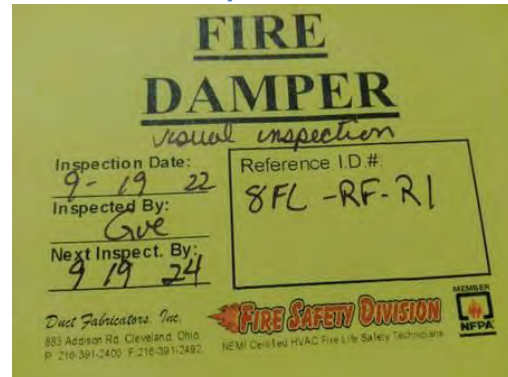 FIRE
DAMPER
visual inspection
Inspection Date:
9-19 22
Inspected By:
Gve
Next Inspect. By:
9 19 24
Reference I.D.#:
8FL-RF-R1
Duct Fabricators, Inc.
883 Addison Rd. Cleveland, Ohio
P: 216-391-2400 F:216-391-2492
FIRE SAFETY DIVISION
NEMI Certified HVAC Fire Life Safety Technicians
MEMBER
NFPA